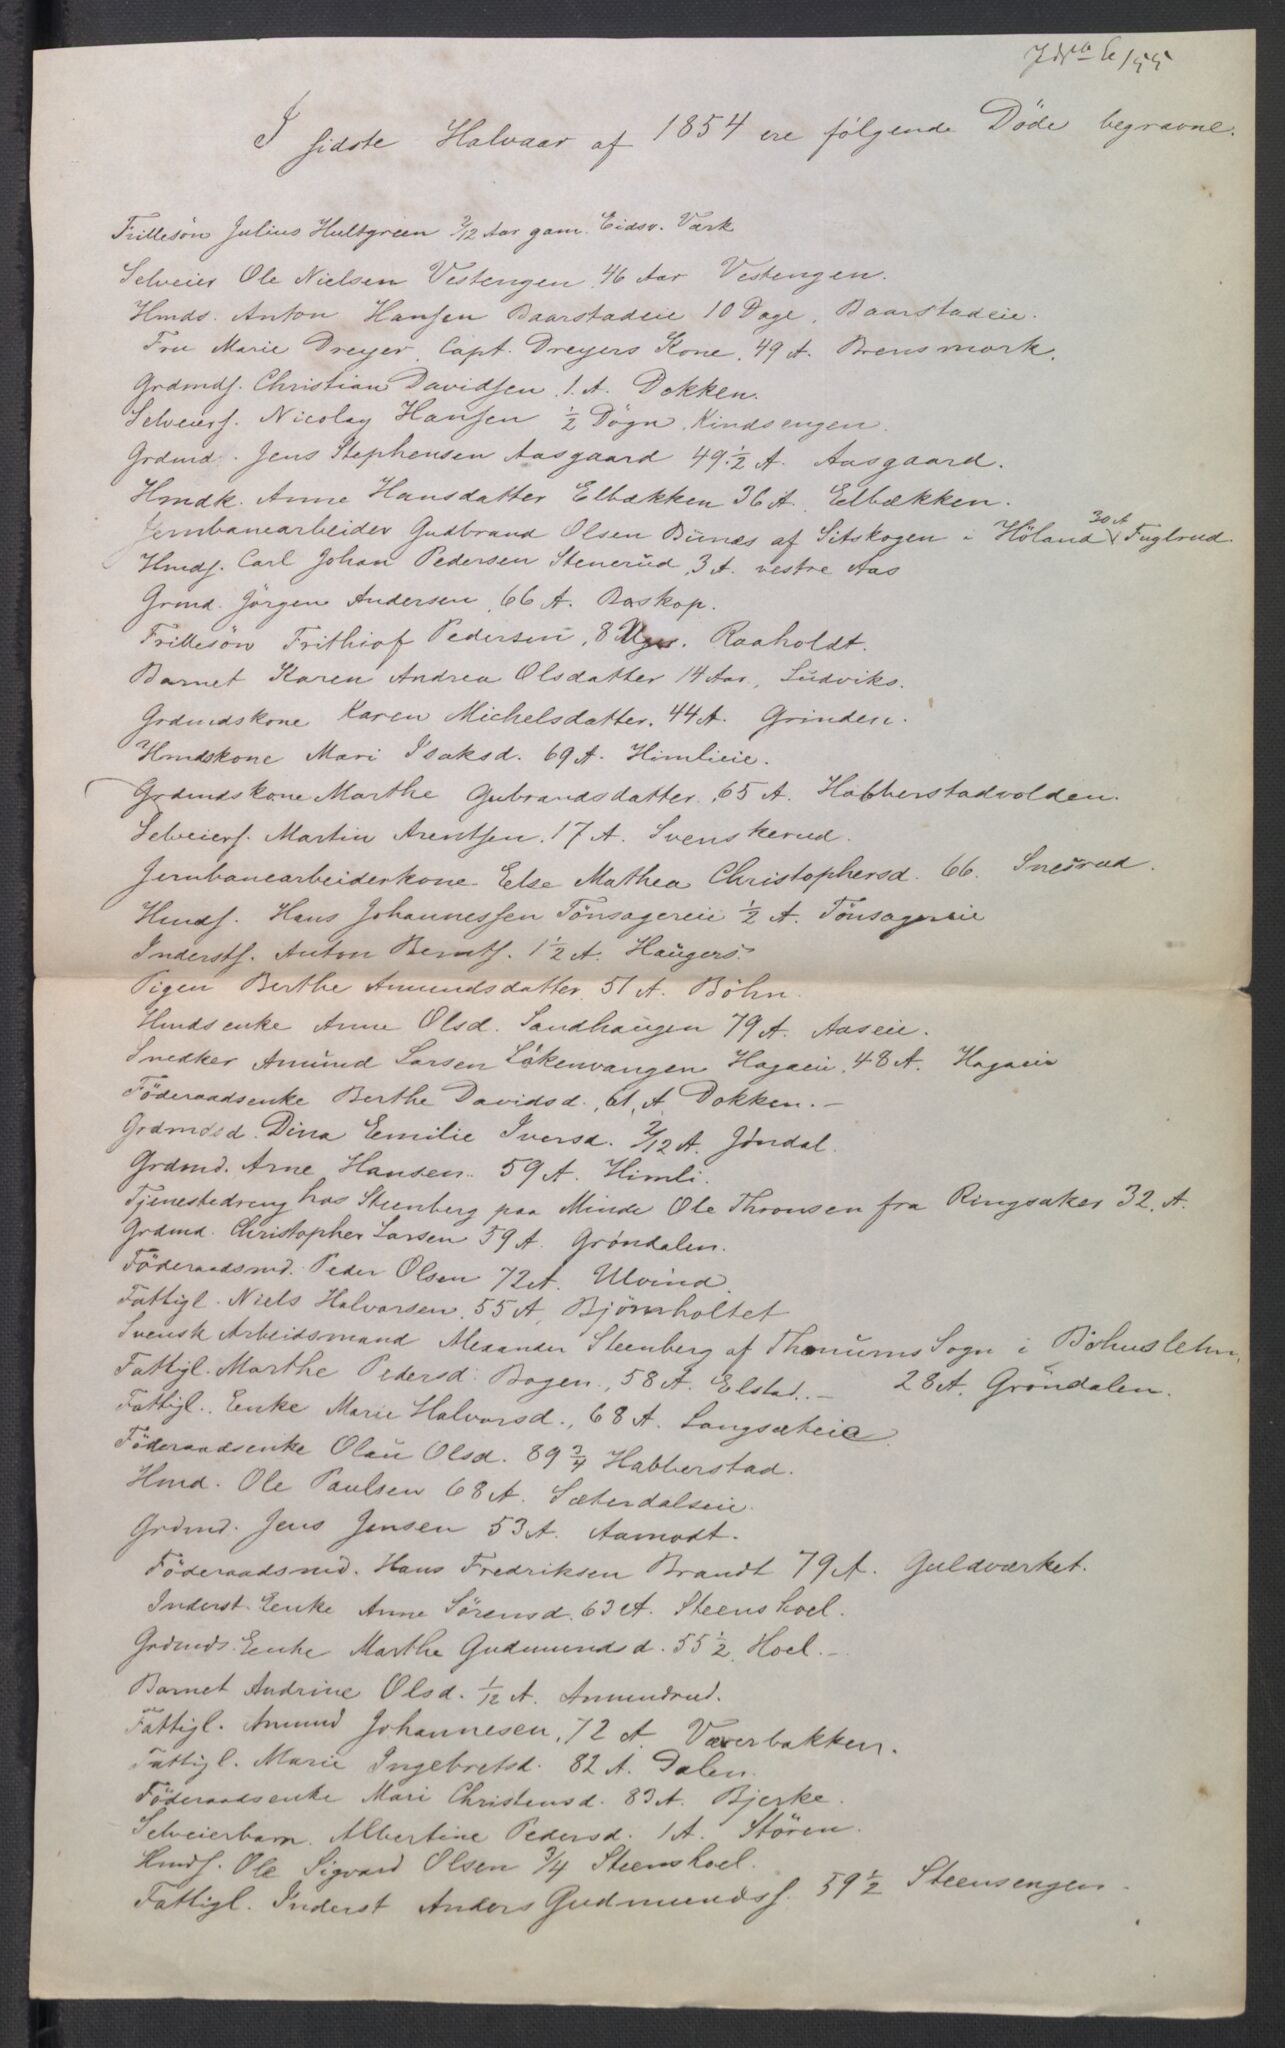 I sidste Halvaar af 1854 ere følgende Döde begravne.
Frillesön Julius Hultgreen 2/12 Aar gam. Eidsv. Værk
Selveier Ole Nielsen Vestengen, 46 Aar Vestengen.
Hmds. Anton Hansen Baarstadeie 10 Dage, Baarstadeie.
Fru Marie Dreyer, Capt. Dreyers Kone, 49 A. Brensmork.
Grdmds. Christian Davidsen, 1 A. Dokken.
Selveiers. Nicolay Hansen ½ Dögn, Kindsengen.
Grdmd. Jens Stephensen Aasgaard 49½ A. Aasgaard.
Hmdk. Anne Hansdatter Elbækken 36 A. Eelbækken.
Jernbanearbeider Gudbrand Olsen Bünæs af Sitskogen i Höland 30 A Fuglrud.
Hmds. Carl Johan Pedersen Stenerüd, 3 A. vestre Aas
Grmd. Jörgen Andersen, 66 A. Baskop.
Frillesön Frithiof Pedersen, 8 Uger. Raaholdt.
Barnet Karen Andrea Olsdatter 14 Aar, Lüdviks.
Grdmdskone Karen Michelsdatter. 44 A. Grinden.
Hmdskone Mari Isaksd. 69 A. Himlieie.
Grdmdskone Marthe Gubrandsdatter, 65 A. Habberstadvolden.
Selveiers. Martin Arentsen. 17 A. Svenskerud.
Jernbanearbeiderkone Else Mathea Christophersd. 66. Snesrud.
Hmds. Hans Johannessen Tönsagereie ½ A. Tönsagereie
Indersts. Anton Bernts. 1½ A. Haügers.
Pigen Berthe Amundsdatter, 51 A. Böhn.
Hmdsenke Anne Olsd. Sandhaügen 79 A. Aaseie.
Snedker Amünd Larsen Lökenvangen Hagaeie, 48 A. Hagaeie
Föderaadsenke Berthe Davidsd., 61, A Dokken. —
Grdmdsd. Dina Emilie Iversd. 2/12 A. Jøndal.
Grdmd. Arne Hansen. 59 A. Himli.
Tjenestedreng hos Steenberg paa Minde Ole Thronsen fra Ringsaker 32. A.
Grdmd. Christopher Larsen 59 A. Gröndalen.
Föderaadsmd. Peder Olsen 72 A. Ulvind.
Fattigl. Niels Halvorsen. 55 A. Björnholtet
Svensk Arbeidsmand Alexander Steenberg af Thanüms Sogn i Bohuslehn,
28 A. Gröndalen.
Fattigl. Marthe Pedersd. Bogen, 58 A. Elstad. —
Fattigl. Enke Marie Halvorsd., 68 A. Langsæteie.
Föderaadsenke Olaü Olsd. 89¾ Habberstad.
Hmd. Ole Paulsen 68 A. Sæterdalseie.
Grdmd. Jens Jensen 53 A. Aamodt.
Föderaadsmd. Hans Fredriksen Brandt 79 A. Guldværket.
Inderst. Eenke Anne Sörensd. 63 A. Steenshoel.
Grdmds. Eenke Marthe Gudmundsd. 55½. Hoel. —
Barnet Andrine Olsd. 1/12 A. Ammundrud.
Fattigl. Amund Johannesen, 72 A. Væverbakken.
Fattigl. Marie Ingebretsd. 82 A. Dalen.
Föderaadsenke Mari Christensd. 83 A. Bjerke.
Selveierbarn. Albertine Pedersd. 1 A. Stören.
Hmds. Ole Sigvard Olsen ¾ Steenshoel.
Fattigl. Inderst Anders Gudmunds. 59½ Steensengen.